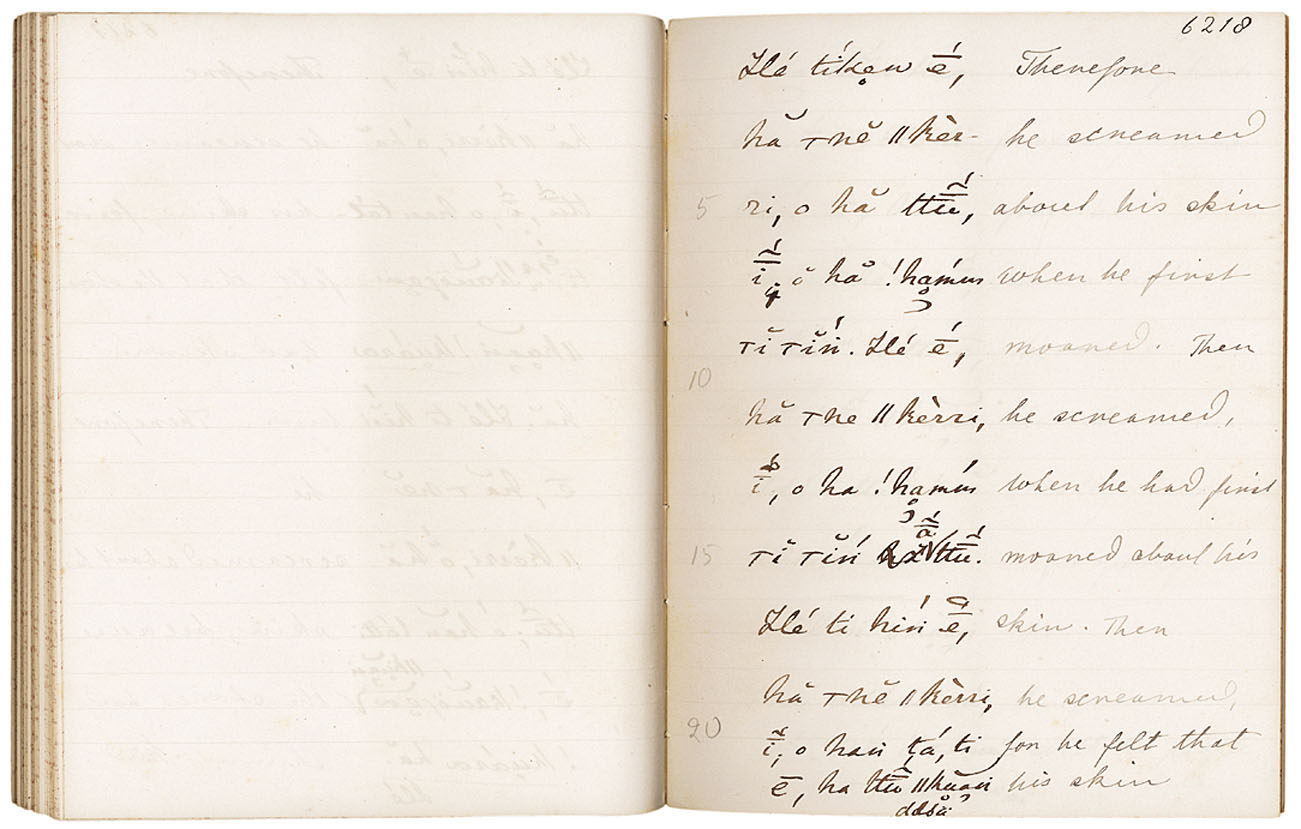 6218
Hé tíkẹn é̄, Therefore
hă ⊤nĕ ǁkèr- he screamed
5 ri, o hă ttū, about his skin
ī, ŏ hă !hamún when he first
⊤ĭ ⊤ĭń. Hé é̄, moaned. Then
10
hă ⊤ne ǁkèrri, he screamed,
ī, o ha !hamún when he had first
15 ⊤ĭ ⊤ĭń ttū. moaned about his
Hé ti hiń ē, skin. Then
hă ⊤nĕ ǁkèrri, he screamed,
20 ī, o haṅ ṭá, ti for he felt that
ē, ha ttū ǁkŭaṅ his skin